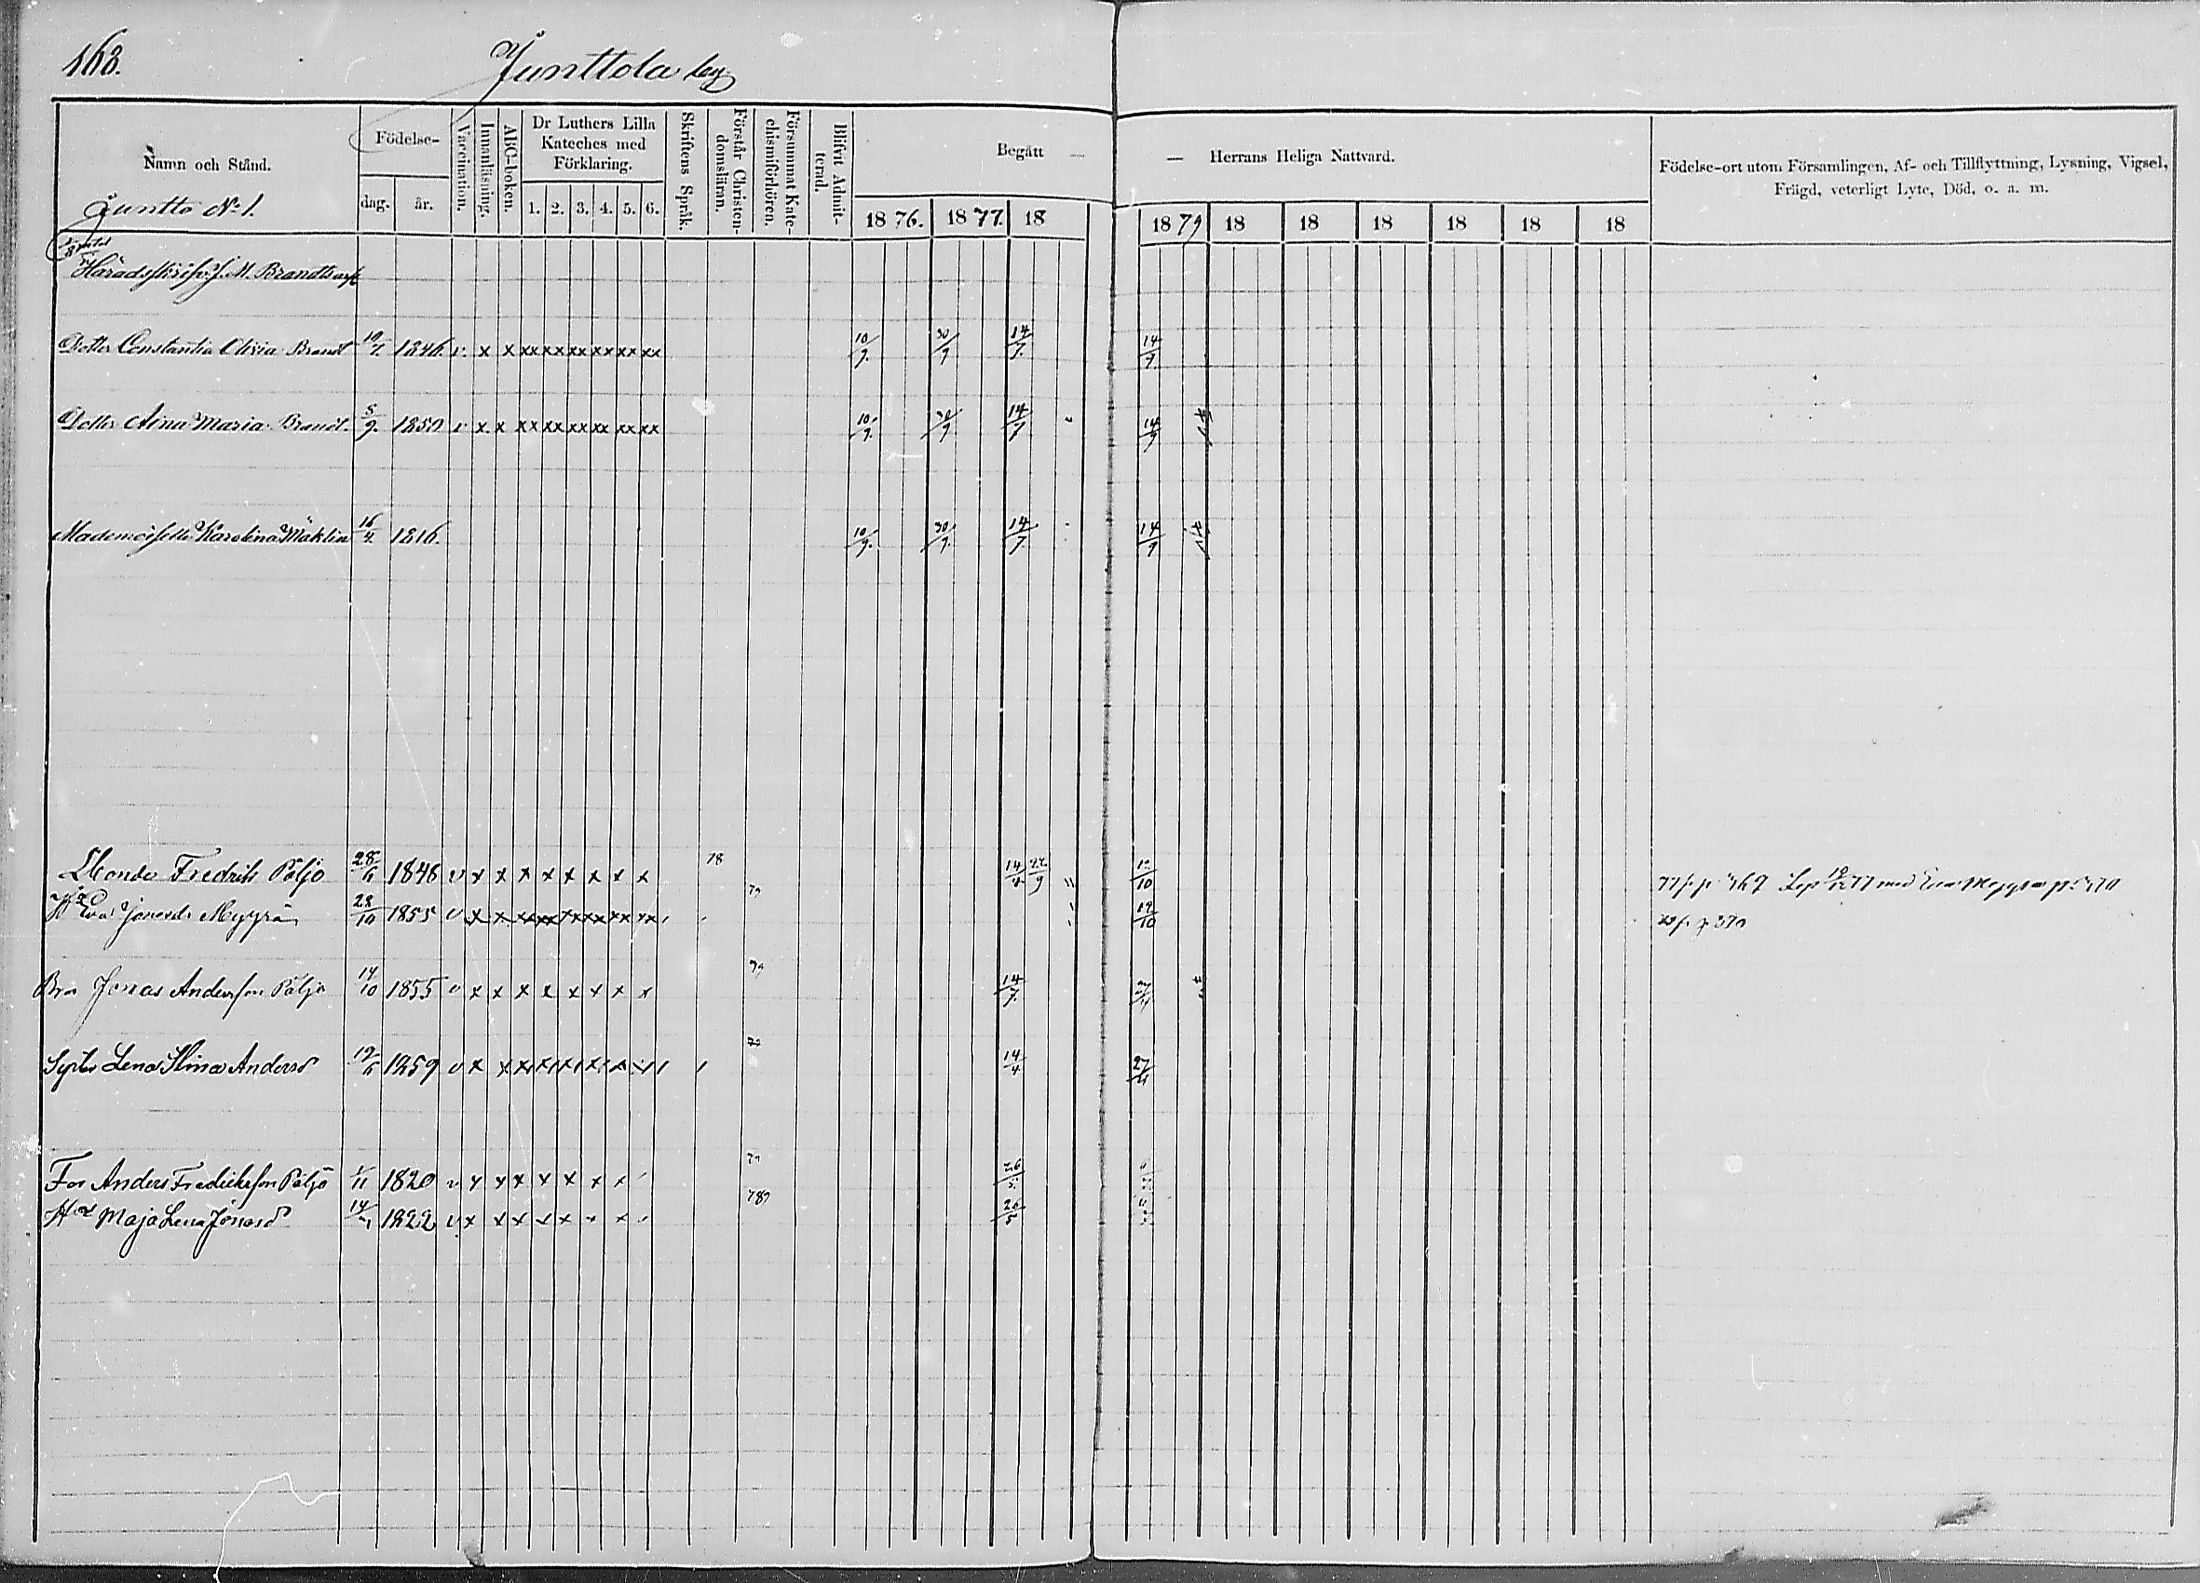 163.
Junttola by
Namn och Stånd.
Födelse-
dag.
år.
Vaccination.
Innanläsning.
ABC-boken.
Dr Luthers Lilla Kateches med Förklaring.
1. 2. 3. 4. 5. 6.
Skriftens Språk.
Förstår Christendomsläran.
Försummat Katechismiförhören.
Blifvit Admitterad.
Begått — — Herrans Heliga Nattvard.
18 76. 18 77. 18 18 79 18 18 18 18 18 18
Födelse-ort utom Församlingen, Af- och Tillflyttning, Lysning, Vigsel,
Frägd, veterligt Lyte, Död, o. a. m.
Juntto No 1.
Häradsskrifv. J. M. Brandts
Dotter Constantia Olivia Brandt 10/7. 1846. v. x x xx xx xx xx xx xx 10/9. 30/9 14/7. 14/9.
Dotter Aina Maria Brandt. 5/9. 1850 v x x xx xx xx xx xx xx 10/9. 30/9 14/7 14/9
Mademoiselle Karolina Mäklin 16/4. 1816. 10/9. 30/9. 14/7. 14/9
Fredrik Päljö 28/11 1848 v x x x x x x x x 78 14/4 22/9 " 12/10 77 fr. p. 367 Lyst 77 med Eva Myyrä p. 370
Eva Jonasd. Myyrä 28/10 1855 v x x xx xx xx xx xx xx 79 12/10 fr. p 370
Bro Jonas Andersson Päljö 14/10 1855 v x x x x x x x x 79 14/7.
Syster Lena Stina Andersd 1859 v x x x x x x x x 14/4 27/11
Far Anders Fredriksson Päljö 1/11 1820 v x x x x x x x 79 26/5
Maja Lena Jonasd 1822 v x x x x x x x 789 26/5